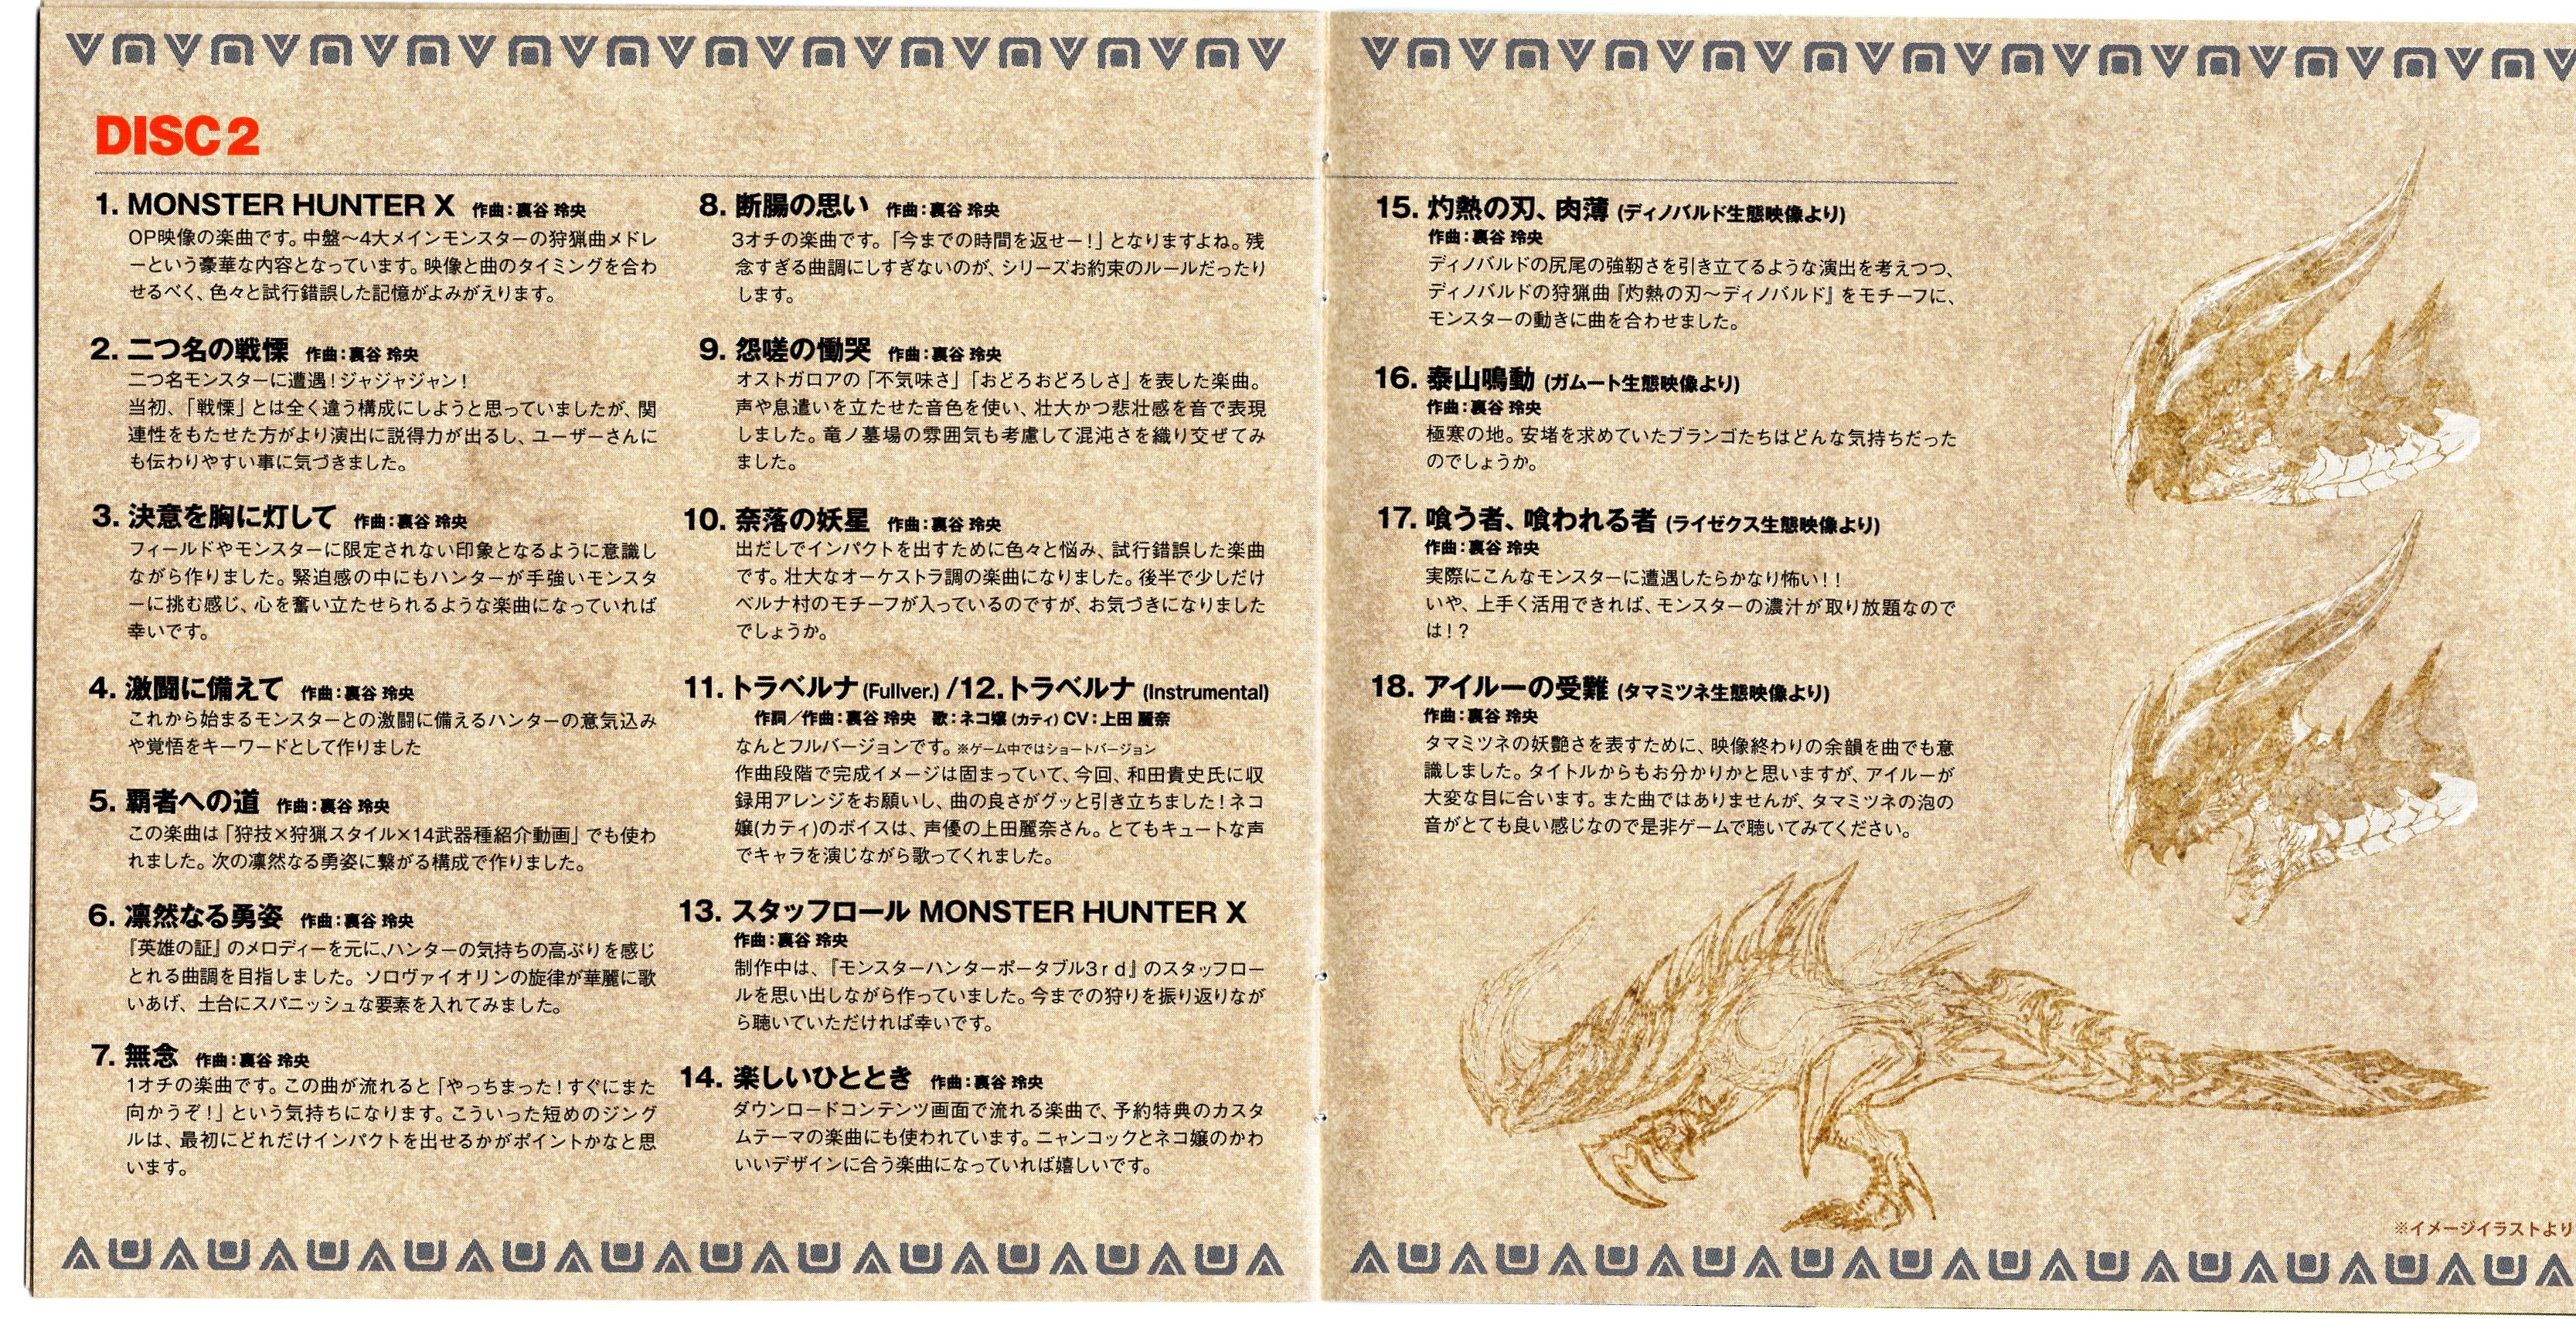 DISC2
1. MONSTER HUNTER X 作曲：裏谷 玲央
OP映像の楽曲です。中盤～4大メインモンスターの狩猟曲メドレ
ーという豪華な内容となっています。映像と曲のタイミングを合わ
せるべく、色々と試行錯誤した記憶がよみがえります。
2. 二つ名の戦慄 作曲：裏谷 玲央
二つ名モンスターに遭遇！ジャジャジャン！
当初、「戦慄」とは全く違う構成にしようと思っていましたが、関
連性をもたせた方がより演出に説得力が出るし、ユーザーさんに
も伝わりやすい事に気づきました。
3. 決意を胸に灯して 作曲：裏谷 玲央
フィールドやモンスターに限定されない印象となるように意識し
ながら作りました。緊迫感の中にもハンターが手強いモンスタ
ーに挑む感じ、心を奮い立たせられるような楽曲になっていれば
幸いです。
4. 激闘に備えて 作曲：裏谷 玲央
これから始まるモンスターとの激闘に備えるハンターの意気込み
や覚悟をキーワードとして作りました
5. 覇者への道 作曲：裏谷 玲央
この楽曲は「狩技×狩猟スタイル×14武器種紹介動画」でも使わ
れました。次の凛然なる勇姿に繋がる構成で作りました。
6. 凛然なる勇姿 作曲：裏谷 玲央
『英雄の証』のメロディーを元に、ハンターの気持ちの高ぶりを感じ
とれる曲調を目指しました。ソロヴァイオリンの旋律が華麗に歌
いあげ、土台にスパニッシュな要素を入れてみました。
7. 無念 作曲：裏谷 玲央
1オチの楽曲です。この曲が流れると「やっちまった！すぐにまた
向かうぞ！」という気持ちになります。こういった短めのジング
ルは、最初にどれだけインパクトを出せるかがポイントかなと思
います。
8. 断腸の思い 作曲：裏谷 玲央
3オチの楽曲です。「今までの時間を返せー！」となりますよね。残
念すぎる曲調にしすぎないのが、シリーズお約束のルールだったり
します。
9. 怨嗟の慟哭 作曲：裏谷 玲央
オストガロアの「不気味さ」「おどろおどろしさ」を表した楽曲。
声や息遣いを立たせた音色を使い、壮大かつ悲壮感を音で表現
しました。竜ノ墓場の雰囲気も考慮して混沌さを織り交ぜてみ
ました。
10. 奈落の妖星 作曲：裏谷 玲央
出だしでインパクトを出すために色々と悩み、試行錯誤した楽曲
です。壮大なオーケストラ調の楽曲になりました。後半で少しだけ
ベルナ村のモチーフが入っているのですが、お気づきになりました
でしょうか。
11. トラベルナ (Fullver.) /12.トラベルナ (Instrumental)
作詞／作曲：裏谷 玲央 歌：ネコ嬢 (カティ) CV：上田 麗奈
なんとフルバージョンです。※ゲーム中ではショートバージョン
作曲段階で完成イメージは固まっていて、今回、和田貴史氏に収
録用アレンジをお願いし、曲の良さがグッと引き立ちました！ネコ
嬢(カティ)のボイスは、声優の上田麗奈さん。とてもキュートな声
でキャラを演じながら歌ってくれました。
13. スタッフロール MONSTER HUNTER X
作曲：裏谷 玲央
制作中は、『モンスターハンターポータブル3ｒｄ』のスタッフロー
ルを思い出しながら作っていました。今までの狩りを振り返りなが
ら聴いていただければ幸いです。
14. 楽しいひととき 作曲：裏谷 玲央
ダウンロードコンテンツ画面で流れる楽曲で、予約特典のカスタ
ムテーマの楽曲にも使われています。ニャンコックとネコ嬢のかわ
いいデザインに合う楽曲になっていれば嬉しいです。
15. 灼熱の刃、肉薄 (ディノバルド生態映像より)
作曲：裏谷 玲央
ディノバルドの尻尾の強靭さを引き立てるような演出を考えつつ、
ディノバルドの狩猟曲『灼熱の刃～ディノバルド』をモチーフに、
モンスターの動きに曲を合わせました。
16. 泰山鳴動 (ガムート生態映像より)
作曲：裏谷 玲央
極寒の地。安堵を求めていたブランゴたちはどんな気持ちだった
のでしょうか。
17. 喰う者、喰われる者 (ライゼクス生態映像より)
作曲：裏谷 玲央
実際にこんなモンスターに遭遇したらかなり怖い！！
いや、上手く活用できれば、モンスターの濃汁が取り放題なので
は！？
18. アイルーの受難 (タマミツネ生態映像より)
作曲：裏谷 玲央
タマミツネの妖艶さを表すために、映像終わりの余韻を曲でも意
識しました。タイトルからもお分かりかと思いますが、アイルーが
大変な目に合います。また曲ではありませんが、タマミツネの泡の
音がとても良い感じなので是非ゲームで聴いてみてください。
※イメージイラストより